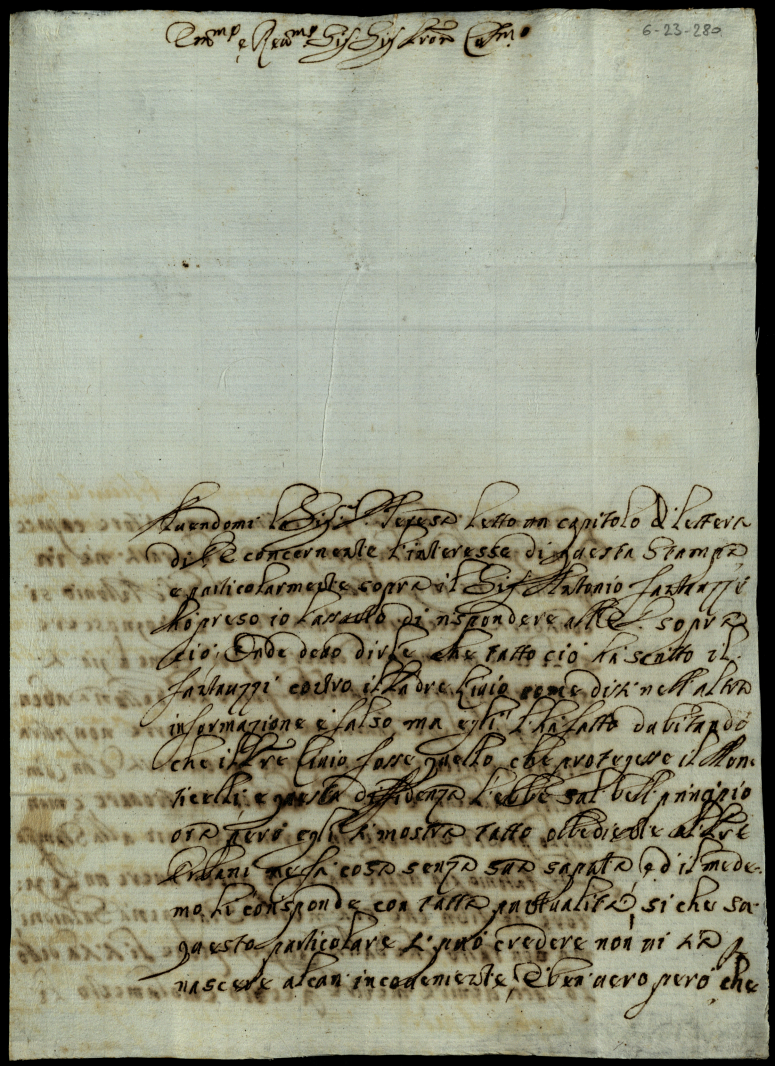 Em.mo e Reu.mo Sig. Sig. Pron Col.mo
6-23-280
Auendomi la Sig.ra Teresa letto un capitolo di lettera
di V.E. concernente l'interesse di questa Stampa
e particolarmente sopra il Sig. Antonio
hò preso io l'assunto di rispondere all'E.V. sopra
ciò, Onde debo dirle che tutto ciò hà scritto il
contro il Padre Liuio come dissi nell'altra
informazione è falso ma egli l'hà fatto dubitando
che il Pre Liuio fosse quello, che protegesse il Mon:
ticelli, e questa diffidenza l'ebbe sul bell principio
ora però egli si mostra tutto obbediente al Pre
Orbani ne fa cosa senza sua saputa, ed il mede:
mo li corisponde con tutta puntualità, si che su
questo particolare si può credere non ui sia p
nascere alcun incoueniente, È ben uero però, che